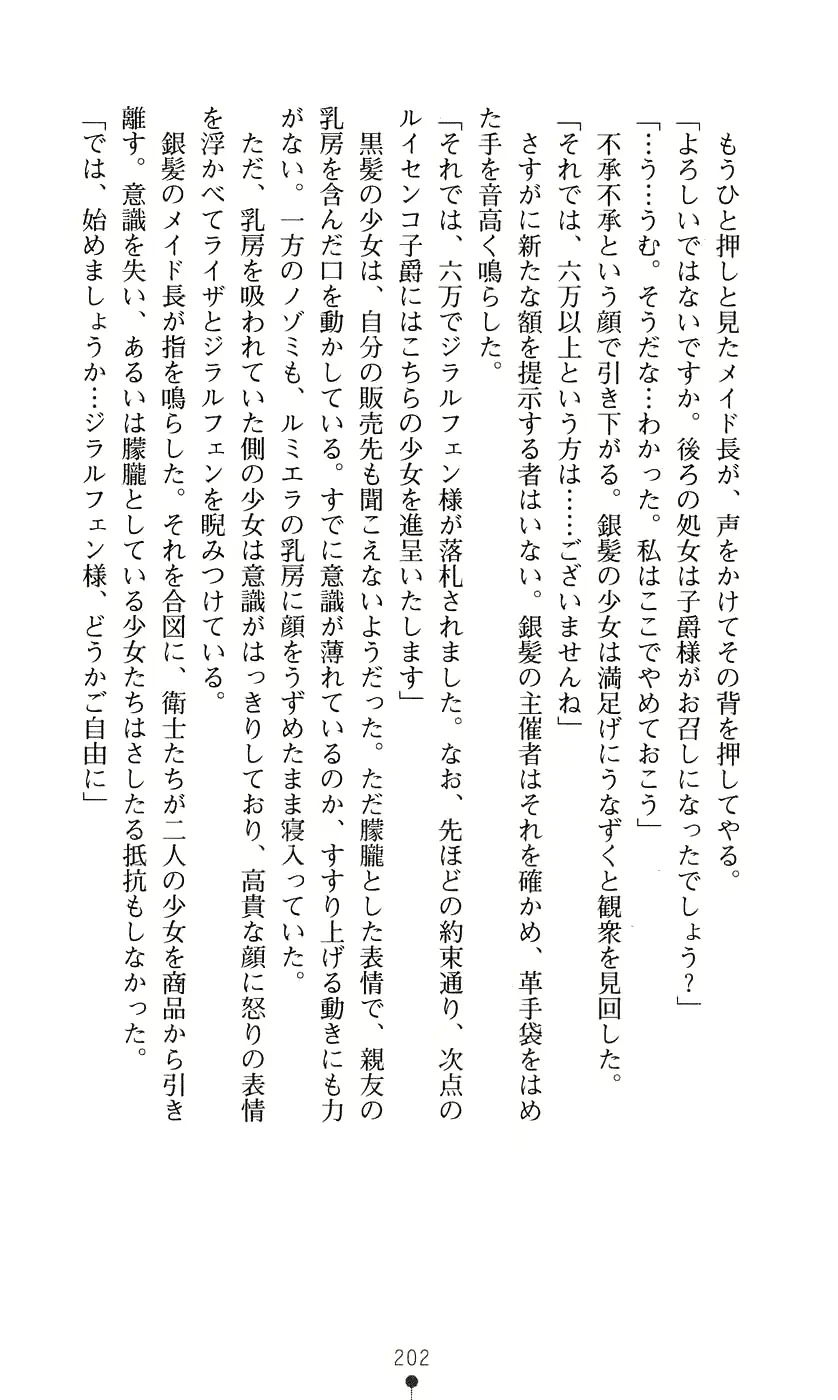 もうひと押しと見たメイド長が、声をかけてその背を押してやる。
「よろしいではないですか。後ろの処女は子爵様がお召しになったでしょう？」
「…う…うむ。そうだな…わかった。私はここでやめておこう」
不承不承という顔で引き下がる。銀髪の少女は満足げにうなずくと観衆を見回した。
「それでは、六万以上という方は……ございませんね」
さすがに新たな額を提示する者はいない。銀髪の主催者はそれを確かめ、革手袋をはめ
た手を音高く鳴らした。
「それでは、六万でジラルフェン様が落札されました。なお、先ほどの約束通り、次点の
ルイセンコ子爵にはこちらの少女を進呈いたします」
黒髪の少女は、自分の販売先も聞こえないようだった。ただ朦朧とした表情で、親友の
乳房を含んだ口を動かしている。すでに意識が薄れているのか、すすり上げる動きにも力
がない。一方のノゾミも、ルミエラの乳房に顔をうずめたまま寝入っていた。
ただ、乳房を吸われていた側の少女は意識がはっきりしており、高貴な顔に怒りの表情
を浮かべてライザとジラルフェンを睨みつけている。
銀髪のメイド長が指を鳴らした。それを合図に、衛士たちが二人の少女を商品から引き
離す。意識を失い、あるいは朦朧としている少女たちはさしたる抵抗もしなかった。
「では、始めましょうか…ジラルフェン様、どうかご自由に」
202